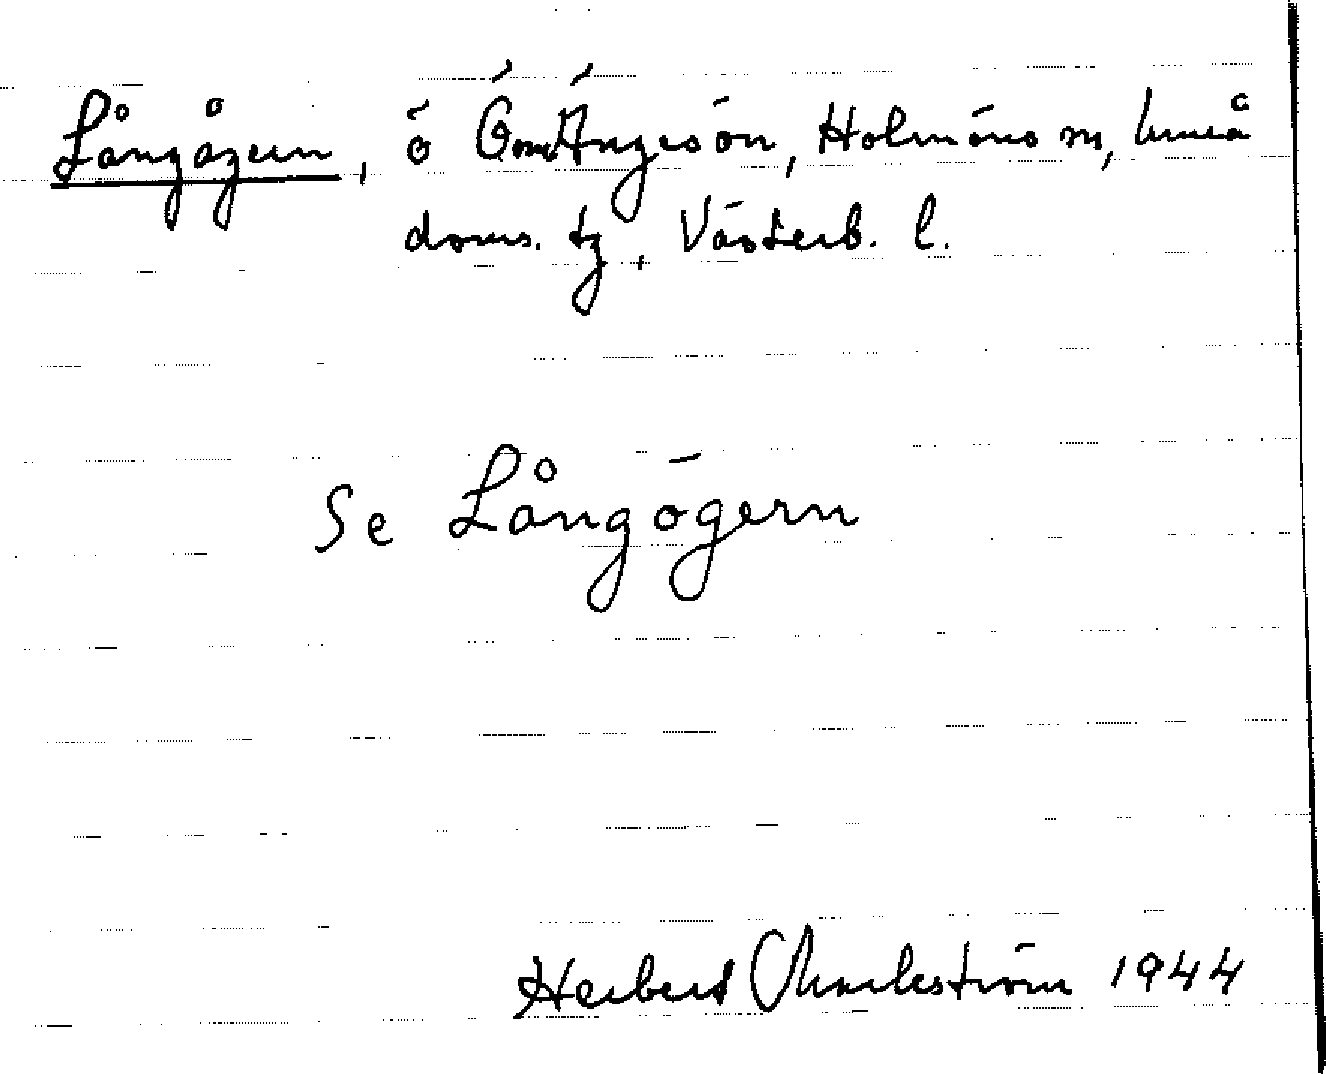 Långågern, ö Öm Ängesön, Holmöns sn, Umeå
doms. tg, Västerb. l.
Se Långögern
Herbert Markström 1944